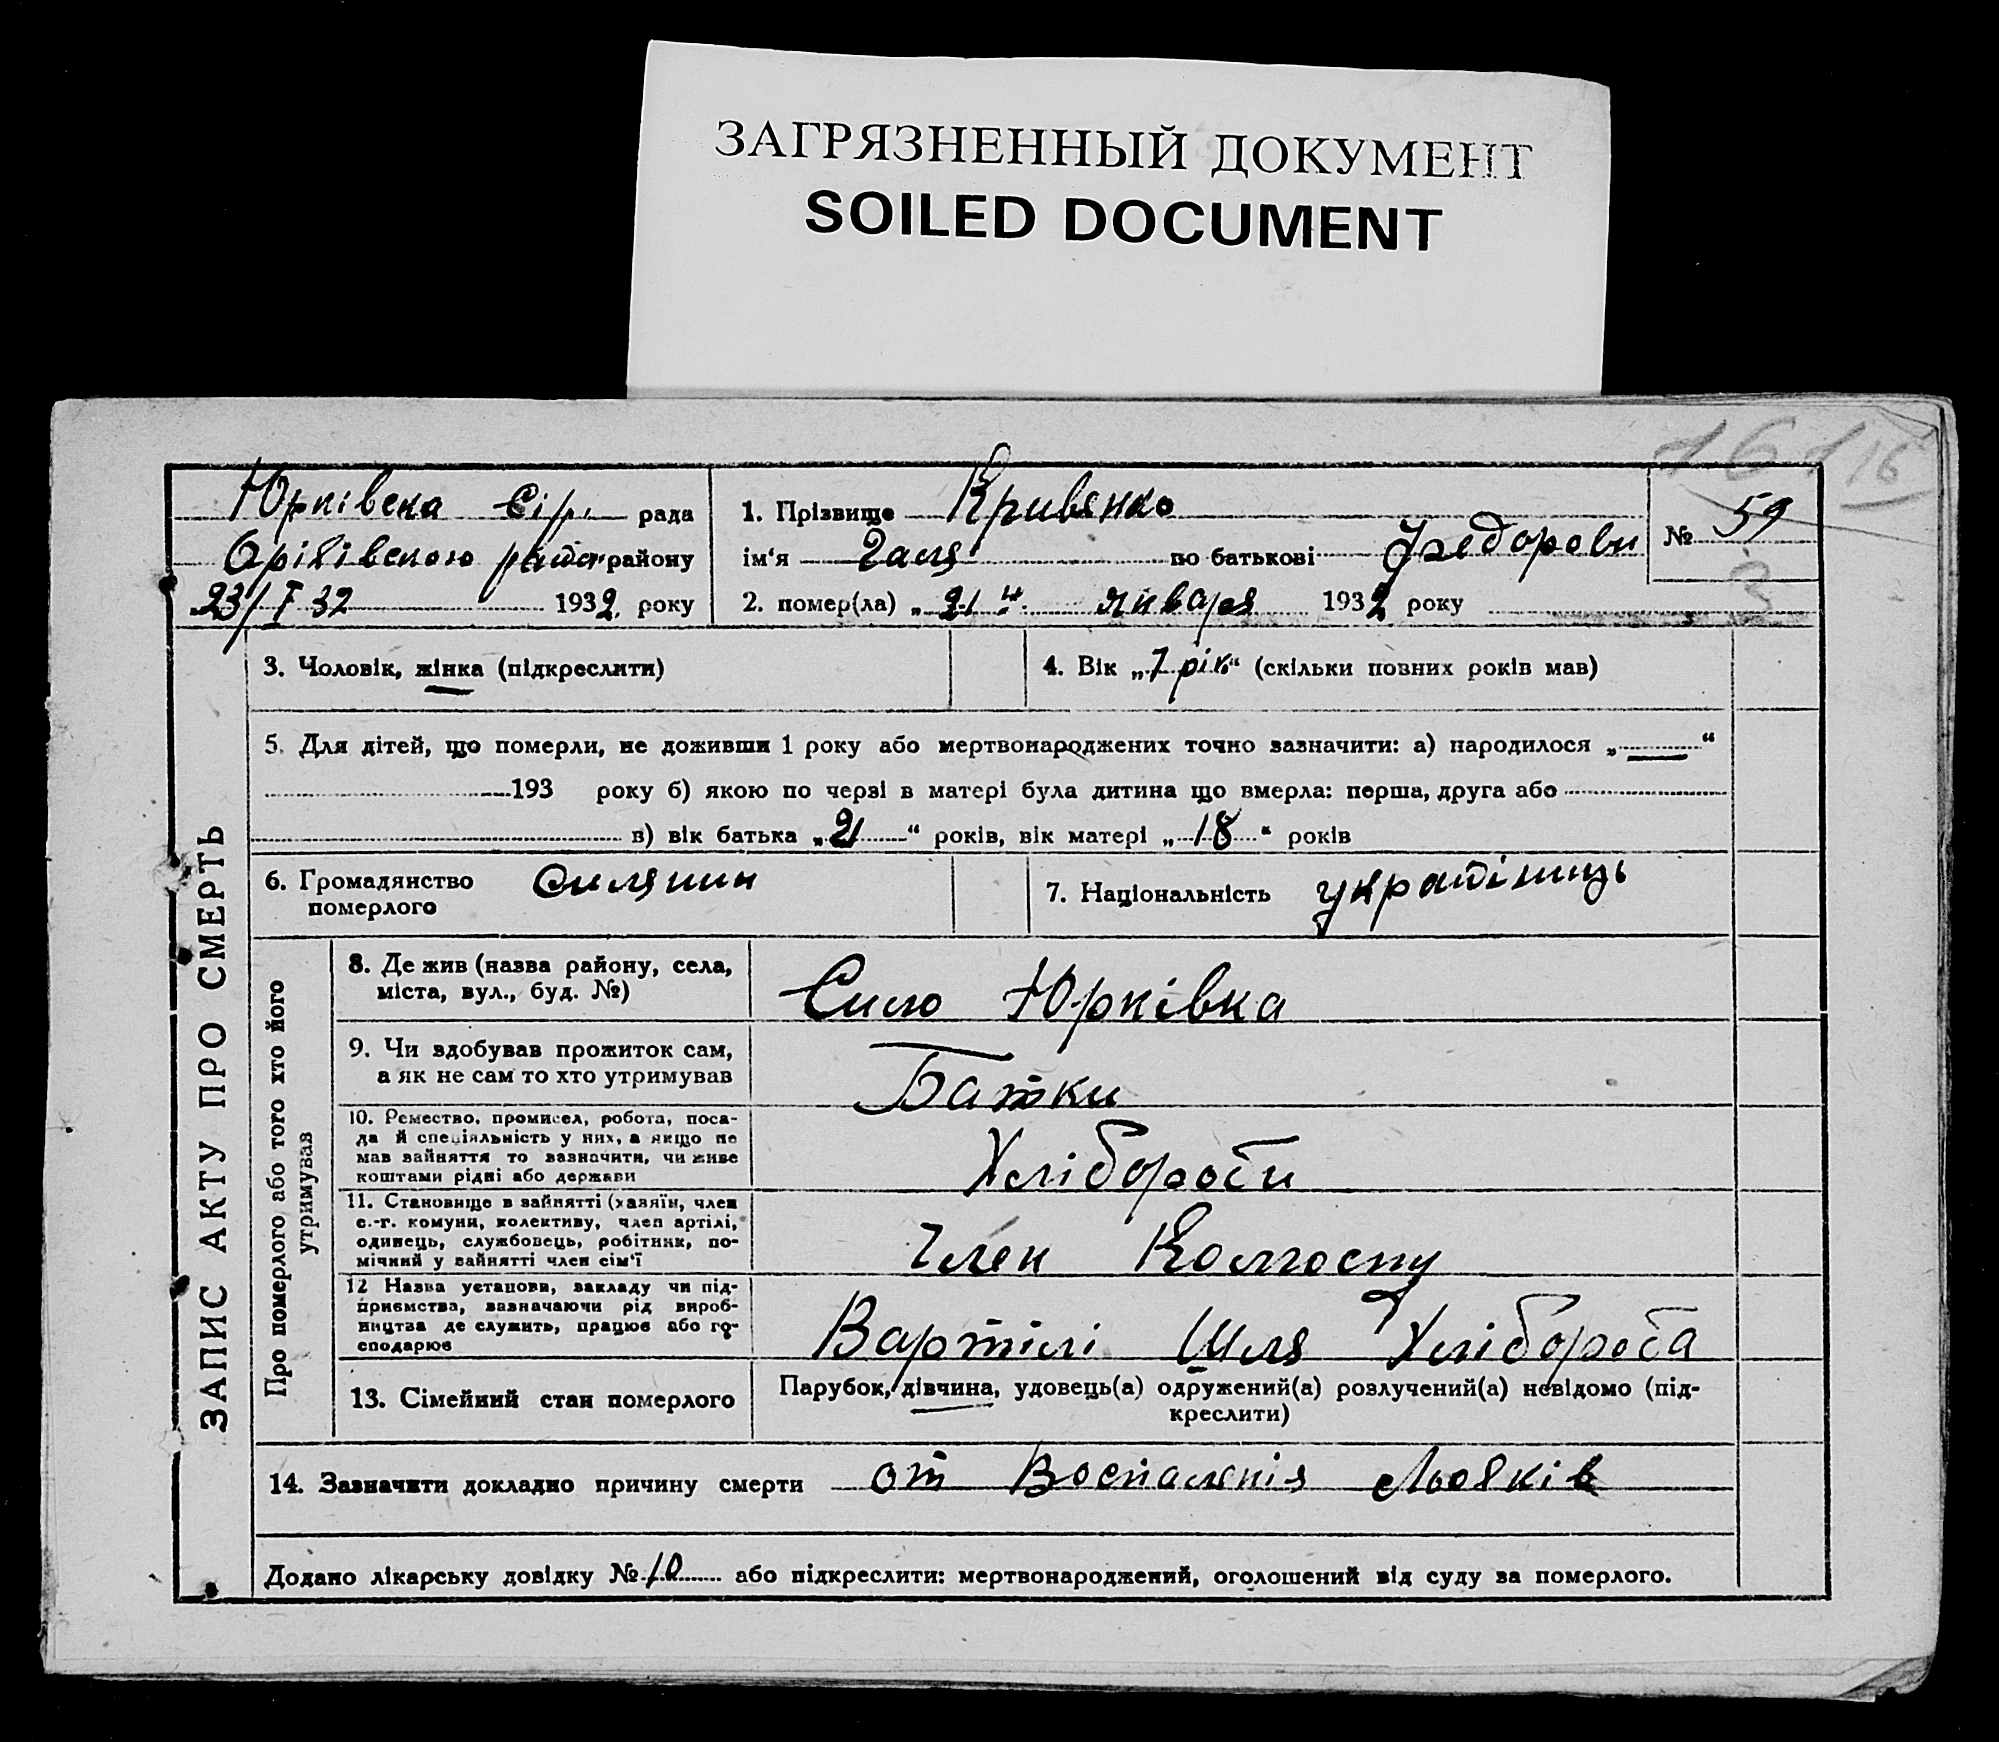 ЗАГРЯЗНЕННЫЙ ДОКУМЕНТ
SOILED DOCUMENT
16 1 16
Юрківска Сір. рада
Оріхівского район району
23/I 32 1932 року
1. Прізвище Кривянко
ім‘я Галя по батькові Хведорови
2. помер(ла) „21“ января 1932 року
№ 59
3
ЗАПИС АКТУ ПРО СМЕРТЬ
3. Чоловік, жінка (підкреслити)
4. Вік „7 рік“ (скільки повних років мав)
5. Для дітей, що померли, не доживши 1 року або мертвонароджених точно зазначити: а) народилося „ — “
193 року б) якою по черзі в матері була дитина що вмерла: перша, друга або
в) вік батька „21“ років, вік матері „18“ років
6. Громадянство
померлого
Силянин
7. Національність україіниць
Про померлого або того хто його
утримував
8. Де жив (назва району, села,
міста, вул., буд. №)
Сило Юрківка
9. Чи здобував прожиток сам,
а як не сам то хто утримував
Батки
10. Ремество, промисел, робота, поса-
да й спеціяльність у них, а якщо не
мав зайняття то зазначити, чи живе
коштами рідні або держави
Хлібороби
11. Становище в зайнятті (хазяїн, член
с.-г. комуни, колективу, член артілі,
одинець, службовець, робітник, по-
мічний у зайнятті член сім‘ї
Член Колгоспу
12 Назва установи, закладу чи під-
приємства, зазначаючи рід вироб-
ництва де служить, працює або го-
сподарює
Вартілі Шля Хлібороба
13. Сімейний стан померлого
Парубок, дівчина, удовець(а) одружений(а) розлучений(а) невідомо (під-
креслити)
14. Зазначити докладно причину смерти от Воспалянія Льояків
Додано лікарську довідку № 10 або підкреслити: мертвонароджений, оголошений від суду за померлого.